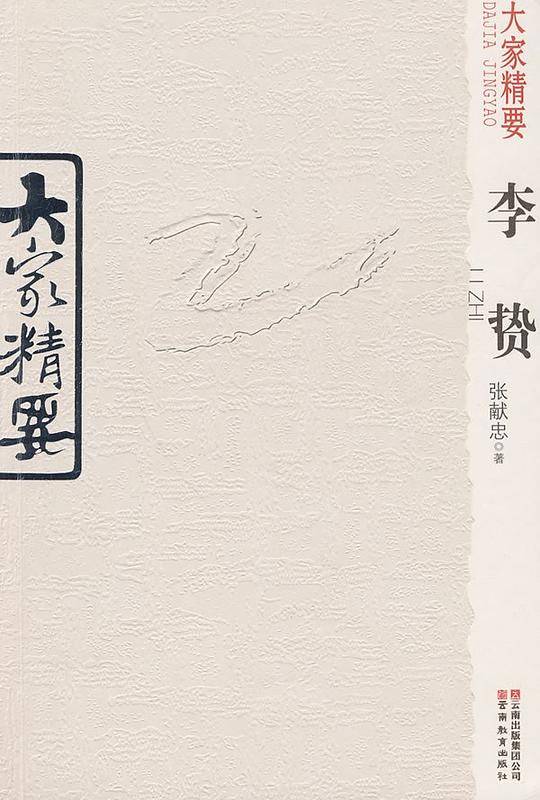 大家精要
DAJIA JINGYAO
李贽
LI ZHI
张献忠◎著
大家精要
云南出版集团公司
云南教育出版社